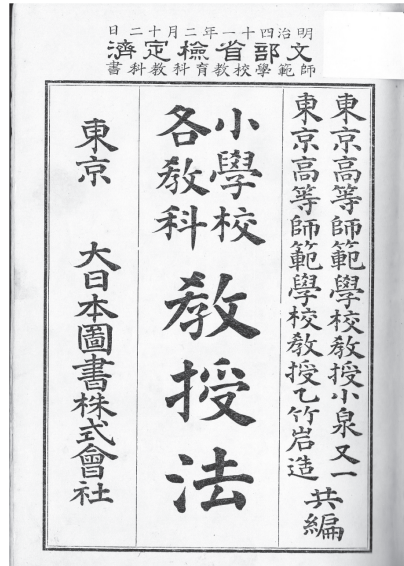 明治四十一年二月十二日
文部省檢定濟
師範學校教育科教科書
東京高等師範學校教授小泉又一
東京高等師範學校教授乙竹岩造
共編
小學校
各教科
教授法
東京 大日本圖書株式會社